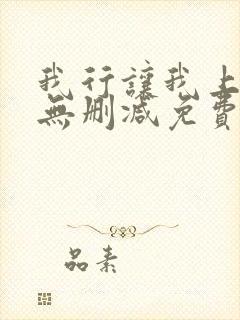 我行讓我上
無刪減免費
品素